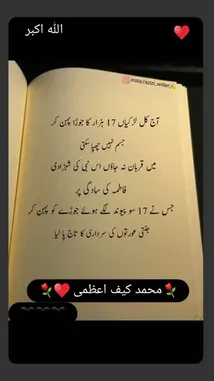 اللّٰه اکبر
insta//azizi_writer
آج کل لڑکیاں 17 ہزار کا جوڑا پہن کر
جسم نہیں چھپا سکتی
میں قربان نہ جاؤں اس نبی کی شہزادی
فاطمہ کی سادگی پر
جس نے 17 سو پیوند لگے ہوئے جوڑے کو پہن کر
جنتی عورتوں کی سرداری کا تاج پا لیا
محمد کیف اعظمی